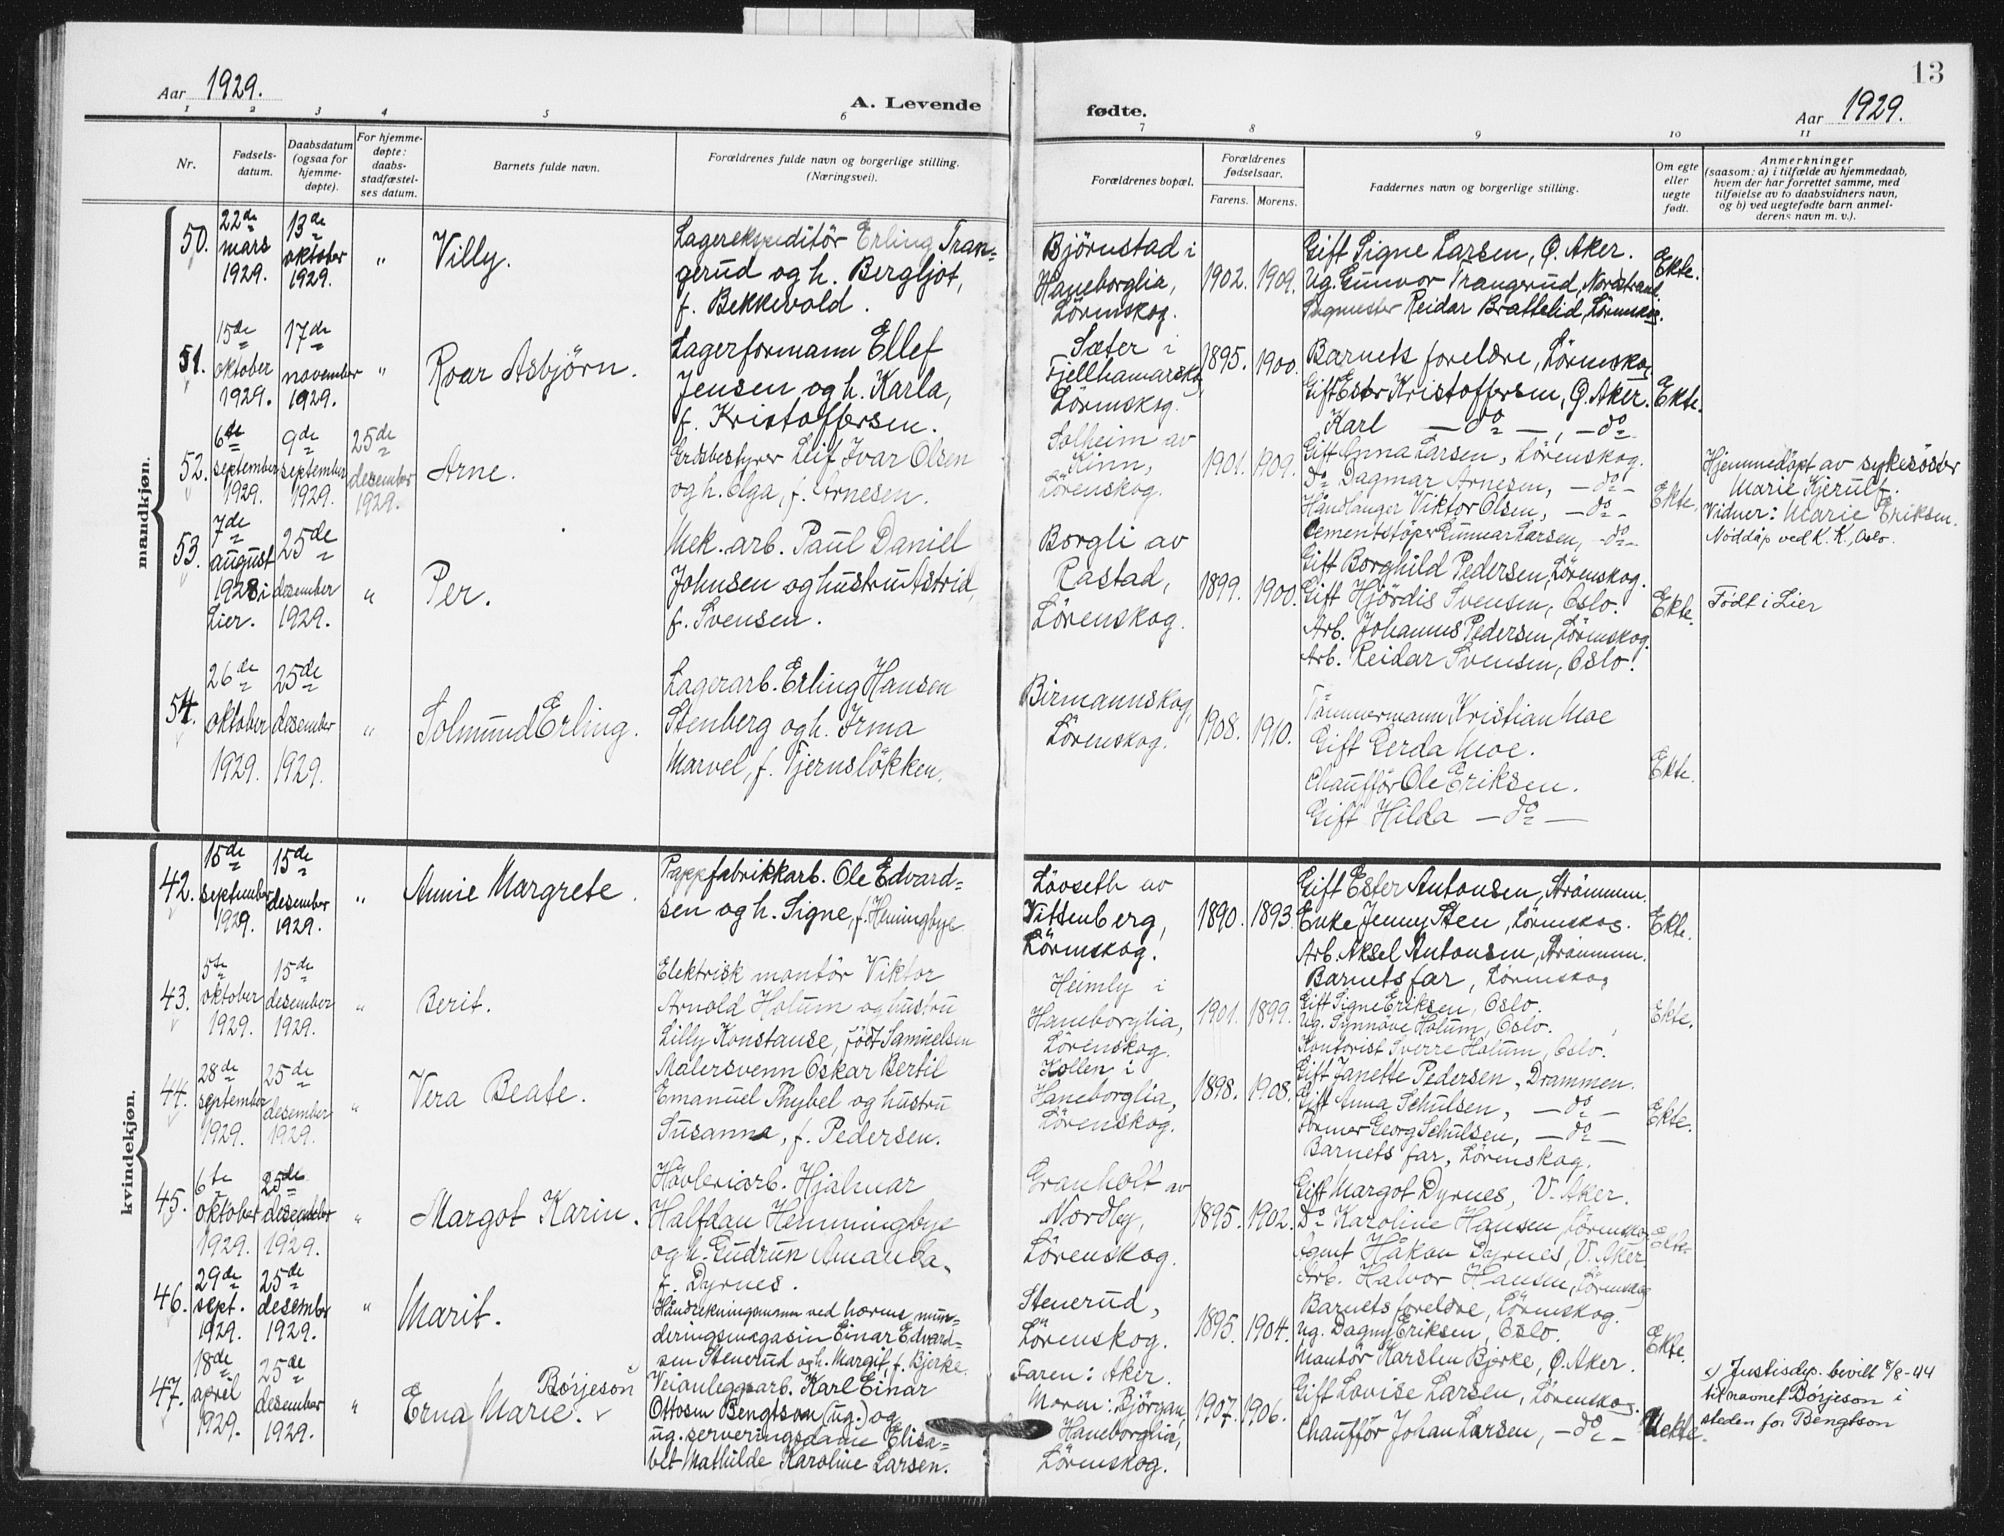 Aar 1929.
A. Levende
1 2 3 4 5 6
Nr.
Fødsels-
datum.
Daabsdatum
(ogsaa for
hjemme-
døpte).
For hjemme-
døpte:
daabs-
stadfæstel-
ses datum.
Barnets fulde navn.
Forældrenes fulde navn og borgerlige stilling.
(Næringsvei).
mandkjøn.
50.
22de
mars
1929.
13de
oktober
1929.
"
Villy.
Lagerekspeditör Erling Tran=
gerud og h. Bergljot,
f. Bekkevold.
51.
15de
oktober
1929.
17de
november
1929.
"
Roar Asbjörn.
Lagerformann Ellef
Jensen og h. Karla,
f. Kristoffersen.
52.
6te
september
1929.
9de
september
1929.
25de
desember
1929.
Arne.
Leif Ivar Olsen
og h. Olga, f. Arnesen.
53.
7de
august
1928 i
Lier.
25de
desember
1929.
"
Per.
Mek. arb. Paul Daniel
Johnsen og hustru Astrid,
f. Svensen.
54.
26de
oktober
1929.
25de
desember
1929.
"
Solmund Erling.
Lagerarb. Erling Hansen
Stenberg og h. Irma
Marvel, f. Tjernslökken.
kvindekjøn.
42.
15de
september
1929.
15de
desember
1929.
"
Annie Margrete.
Pappfabrikkarb. Ole Edvard=
sen og h. Signe, f. Hemingbye
43.
5te
oktober
1929.
15de
desember
1929.
"
Berit.
Elektrisk montör Viktor
Arnold Holum og hustru
Lilly Konstanse, född Samuelsen
44.
28de
september
1929.
25de
desember
1929.
"
Vera Beate.
Malersvenn Oskar Bertil
Emanuel Thybel og hustru
Susanna, f. Pedersen.
45.
6te
oktober
1929.
25de
desember
1929.
"
Margot Karin.
Hövleriarb. Hjalmar
Halfdan Hemmingbye
og h. Gudrun Amanda,
f. Dyrnes.
46.
29de
sept.
1929.
25de
desember
1929.
"
Marit.
Håndrekningsmann ved hærens mun=
deringsmagasin Einar Edvard=
sen Stenerud og h. Margit, f. Bjerke.
47.
18de
april
1929.
25de
desember
1929.
"
Börjeson
Erna Marie.
Veianleggsarb. Karl Einar
Ottosen Bengtson (ug.) og
ug. serveringsdame Elisa=
bet Mathilde Karoline Larsen.
13
fødte.
Aar 1929.
7 8 9 10 11
Forældrenes bopæl.
Forældrenes
fødselsaar.
Farens. Morens.
Faddernes navn og borgerlige stilling.
Om egte
eller
uegte
født.
Anmerkninger
(saasom: a) i tilfælde av hjemmedaab,
hvem der har forrettet samme, med
tilføielse av to daabsvidners navn,
og b) ved uegtefødte barn anmel-
derens navn m. v.).
Björnstad i
Haneborglia,
Lörenskog.
1902. 1909.
Gift Signe Larsen, Ö. Aker.
Ug. Gunvor Trangerud, Nordstrand.
Sagmester Reidar Brattelid, Lörenskog.
Ekte.
Sæter i
Fjellhamarskog,
Lörenskog.
1895. 1900.
Barnets foreldre, Lörenskog
Gift Ester Kristoffersen, Ö. Aker.
Karl — do — , — do
Ekte.
Solheim av
Kinn,
Lörenskog.
1901. 1909.
Gift Anna Larsen, Lörenskog.
Do Dagmar Arnesen, — do —
Håndlanger Viktor Olsen, — do —
Cementstöper Gunnar Larsen, — do —
Ekte.
Hjemmedöpt av sykesöster
Marie Kjerulf.
Vidner: Marie Eriksen.
Nöddåp ved K. K., Oslo.
Borgli av
Rastad,
Lörenskog.
1899. 1900.
Gift Borghild Pedersen, Lörenskog.
Gift Hjördis Svensen, Oslo.
Arb. Johannes Pedersen, Lörenskog.
Arb. Reidar Svensen, Oslo.
Ekte.
Födt i Lier
Birmannskog,
Lörenskog.
1908. 1910.
Tömmermann Kristian Moe
Gift Gerda Moe.
Chaufför Ole Eriksen.
Gift Hilda — do —
Ekte.
Lövseth av
Vittenberg,
Lörenskog.
1890. 1893.
Gift Ester Antonsen, Strömmen.
Enke Jenny Sten, Lörenskog.
Arb. Aksel Antonsen, Strömmen.
Barnets far, Lörenskog
Ekte.
Heimly i
Haneborglia,
Lörenskog.
1901. 1899.
Gift Signe Eriksen, Oslo.
Ug. Synnöve Holum, Oslo.
Kontorist Sverre Holum, Oslo.
Ekte.
Kollen i
Haneborglia,
Lörenskog.
1898. 1908.
Gift Janette Pedersen, Drammen.
Gift Anna Schulsen, — do —
Former Georg Schulsen, — do —
Barnets far, Lörenskog.
Ekte.
Granholt av
Nordby,
Lörenskog.
1895. 1902.
Gift Margot Dyrnes, V. Aker.
Do Karoline Hansen, Lörenskog
Agent Håkon Dyrnes, V. Aker
Arb. Halvor Hansen, Lörenskog
Ekte.
Stenerud,
Lörenskog.
1895. 1904.
Barnets foreldre, Lörenskog.
Ug. Dagny Eriksen, Oslo.
Montör Karsten Bjerke, Ö. Aker.
Ekte.
Faren: Aker.
Moren: Björgan,
Haneborglia,
Lörenskog.
1907. 1906.
Gift Lovise Larsen, Lörenskog.
Chaufför Johan Larsen, — do —
Uekte.
v) Justisdep. bevilt 8/8-44
til navnet Börjeson i
steden for Bengtson